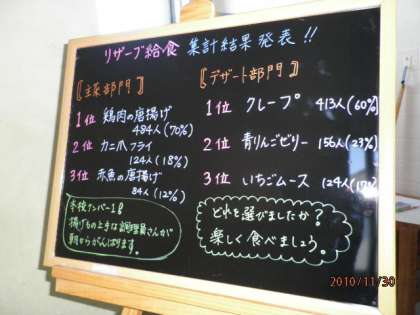 リザーブ給食 集計結果発表!!
〖主菜部門〗
1位 鶏肉の唐揚げ
484人(70%)
2位 カニ爪フライ
124人(18%)
3位 赤魚の唐揚げ
84人(12%)
本校ナンバー1の
揚げもの上手な調理員さんが
朝からがんばります。
〖デザート部門〗
1位 クレープ 413人(60%)
2位 青りんごゼリー 156人(23%)
3位 いちごムース 124人(17%)
どれを選びましたか?
楽しく食べましょう。
2010/11/30